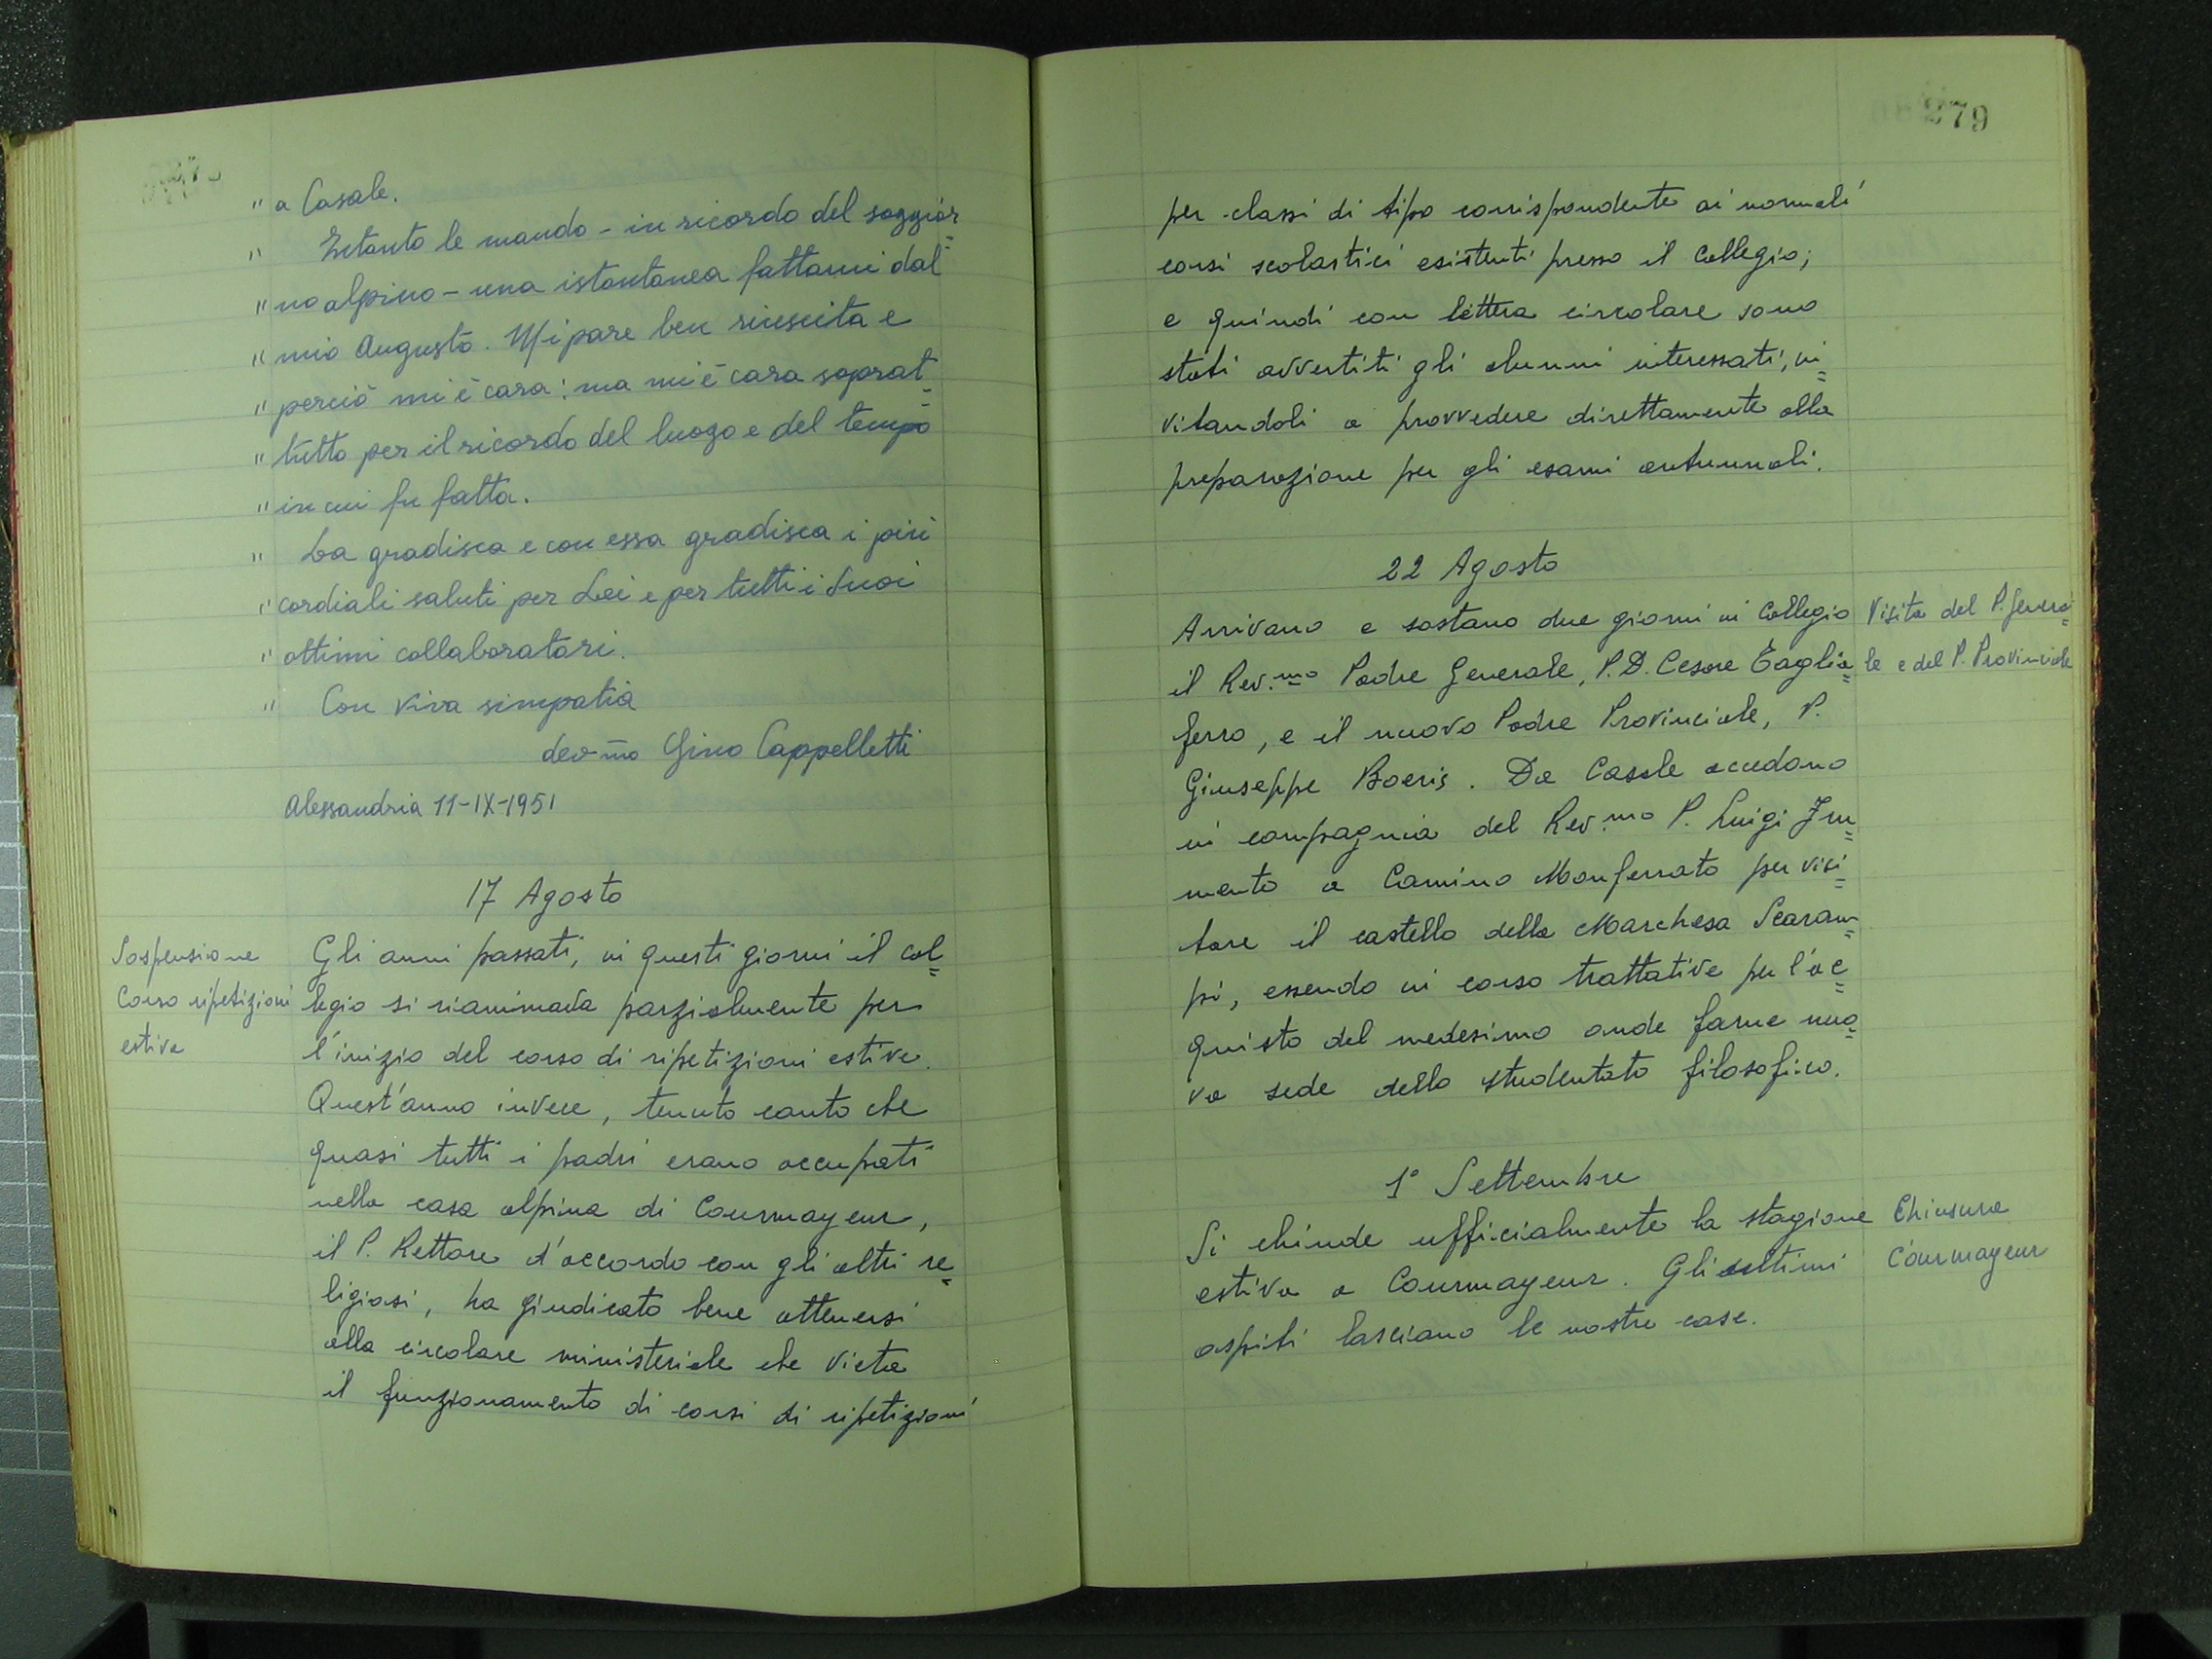 " a Casale.
" Intanto le mando - in ricordo del soggior=
" no alpino - una istantanea fattami dal
" mio Augusto. Mi pare ben riuscita e
" perciò mi è cara: ma mi è cara soprat=
" tutto per il ricordo del luogo e del tempo
" in cui fu fatta.
" La gradisca e con essa gradisca i più
" cordiali saluti per Lei e per tutti i Suoi
" ottimi collaboratori.
" Con viva simpatia
dev-mo Gino Cappelletti
Alessandria 11-IX-1951
17 Agosto
Sospensione
Corso ripetizioni
estive
Gli anni passati, in questi giorni il col=
legio si rianimava parzialmente per
l'inizio del corso di ripetizioni estive.
Quest'anno invece, tenuto conto che
quasi tutti i padri erano occupati
nella casa alpina di Courmayeur,
il P. Rettore d'accordo con gli altri re=
ligiosi, ha giudicato bene attenersi
alla circolare ministeriale che vieta
il funzionamento di corsi di ripetizioni
279
per classi di tipo corrispondente ai normali
corsi scolastici esistenti presso il Collegio;
e quindi con lettera circolare sono
stati avvertiti gli alunni interessati, in=
vitandoli a provvedere direttamente alla
preparazione per gli esami autunnali.
22 Agosto
Arrivano e sostano due giorni in Collegio
il Rev.mo Padre Generale, P. D. Cesare Taglia=
ferro, e il nuovo Padre Provinciale, P.
Giuseppe Boeris. Da Casale accedono
in compagnia del Rev.mo P. Luigi Im=
mento a Camino Monferrato per visi=
tare il castello della Marchesa Scaram=
pi, essendo in corso trattative per l'ac=
quisto del medesimo onde farne nuo=
va sede dello studentato filosofico.
Visita del P. Genera=
le e del P. Provinciale
1° Settembre
Si chiude ufficialmente la stagione
estiva a Courmayeur. Gli ultimi
ospiti lasciano le nostre case.
Chiusura
Courmayeur